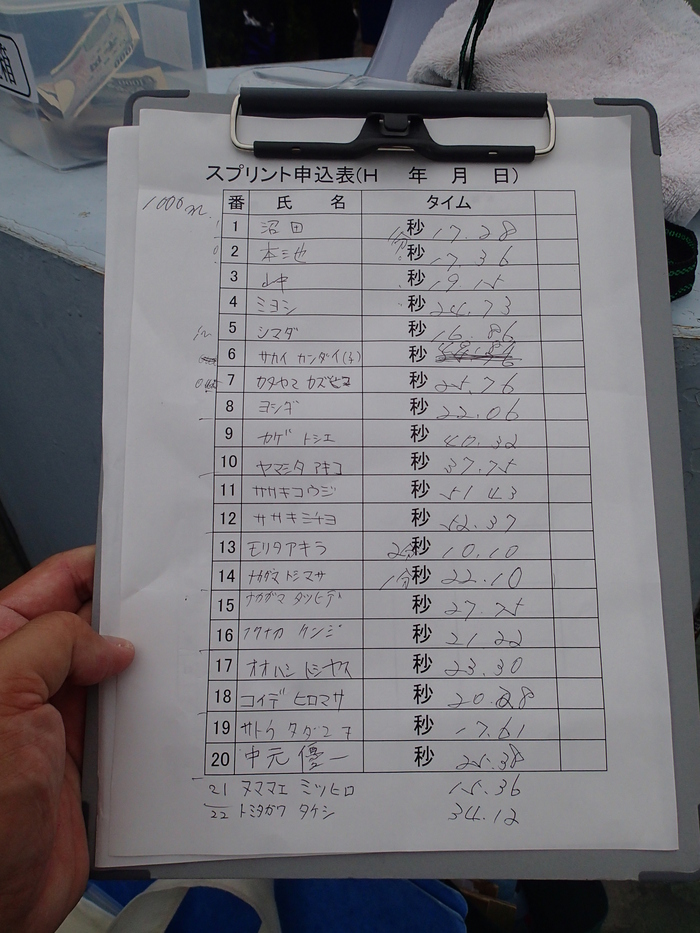 箱
スプリント申込表(H 年 月 日)
1000m
番 氏 名 タイム
1 沼田 1分 秒 17.28
2 本池 秒 17.36
3 山中 秒 19.15
4 ミヨシ 秒 24.73
5 シマダ 秒 16.86
6 サカイ カンダイ(子) 秒
7 カタヤマ カズヒコ 秒 25.76
8 ヨシダ 秒 22.06
9 カゲ トシエ 秒 40.32
10 ヤマシタ アキコ 秒 37.75
11 ササキコウジ 秒 51.43
12 ササキミチヨ 秒 52.37
13 モリタアキラ 2分 秒 10.10
14 ナカガマ トシマサ 1分 秒 22.10
15 ナカガマ タツヒデ 秒 27.75
16 フクナカ ケンジ 秒 21.22
17 オオハシ トシヤス 秒 23.30
18 コイデ ヒロマサ 秒 20.28
19 サトウ 秒 17.61
20 中元 優一 秒 25.38
21 ヌママエ ミツヒロ 15.36
22 トミタガワ タケシ 34.12